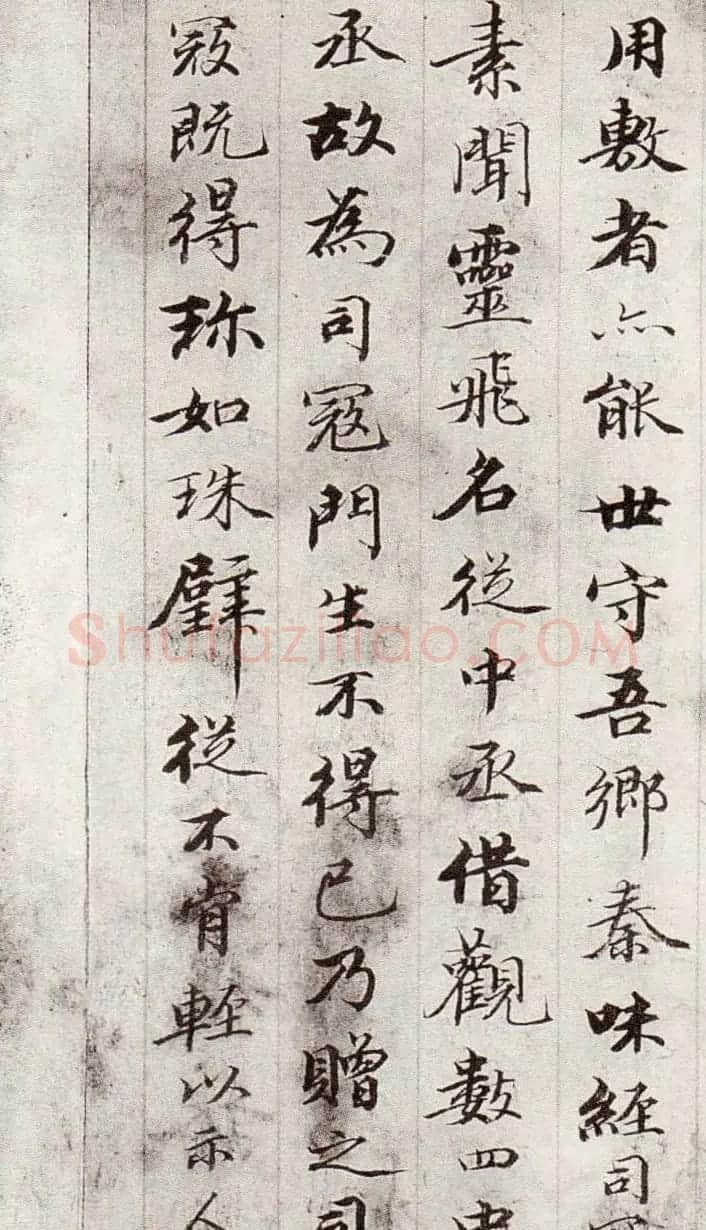 用敷者亦能世守吾鄉秦味經司
素聞靈飛名從中丞借觀數四中
丞故為司寇門生不得已乃贈之司
寇既得珎如珠璧從不肯輕以示人
Shufaziliao.COM